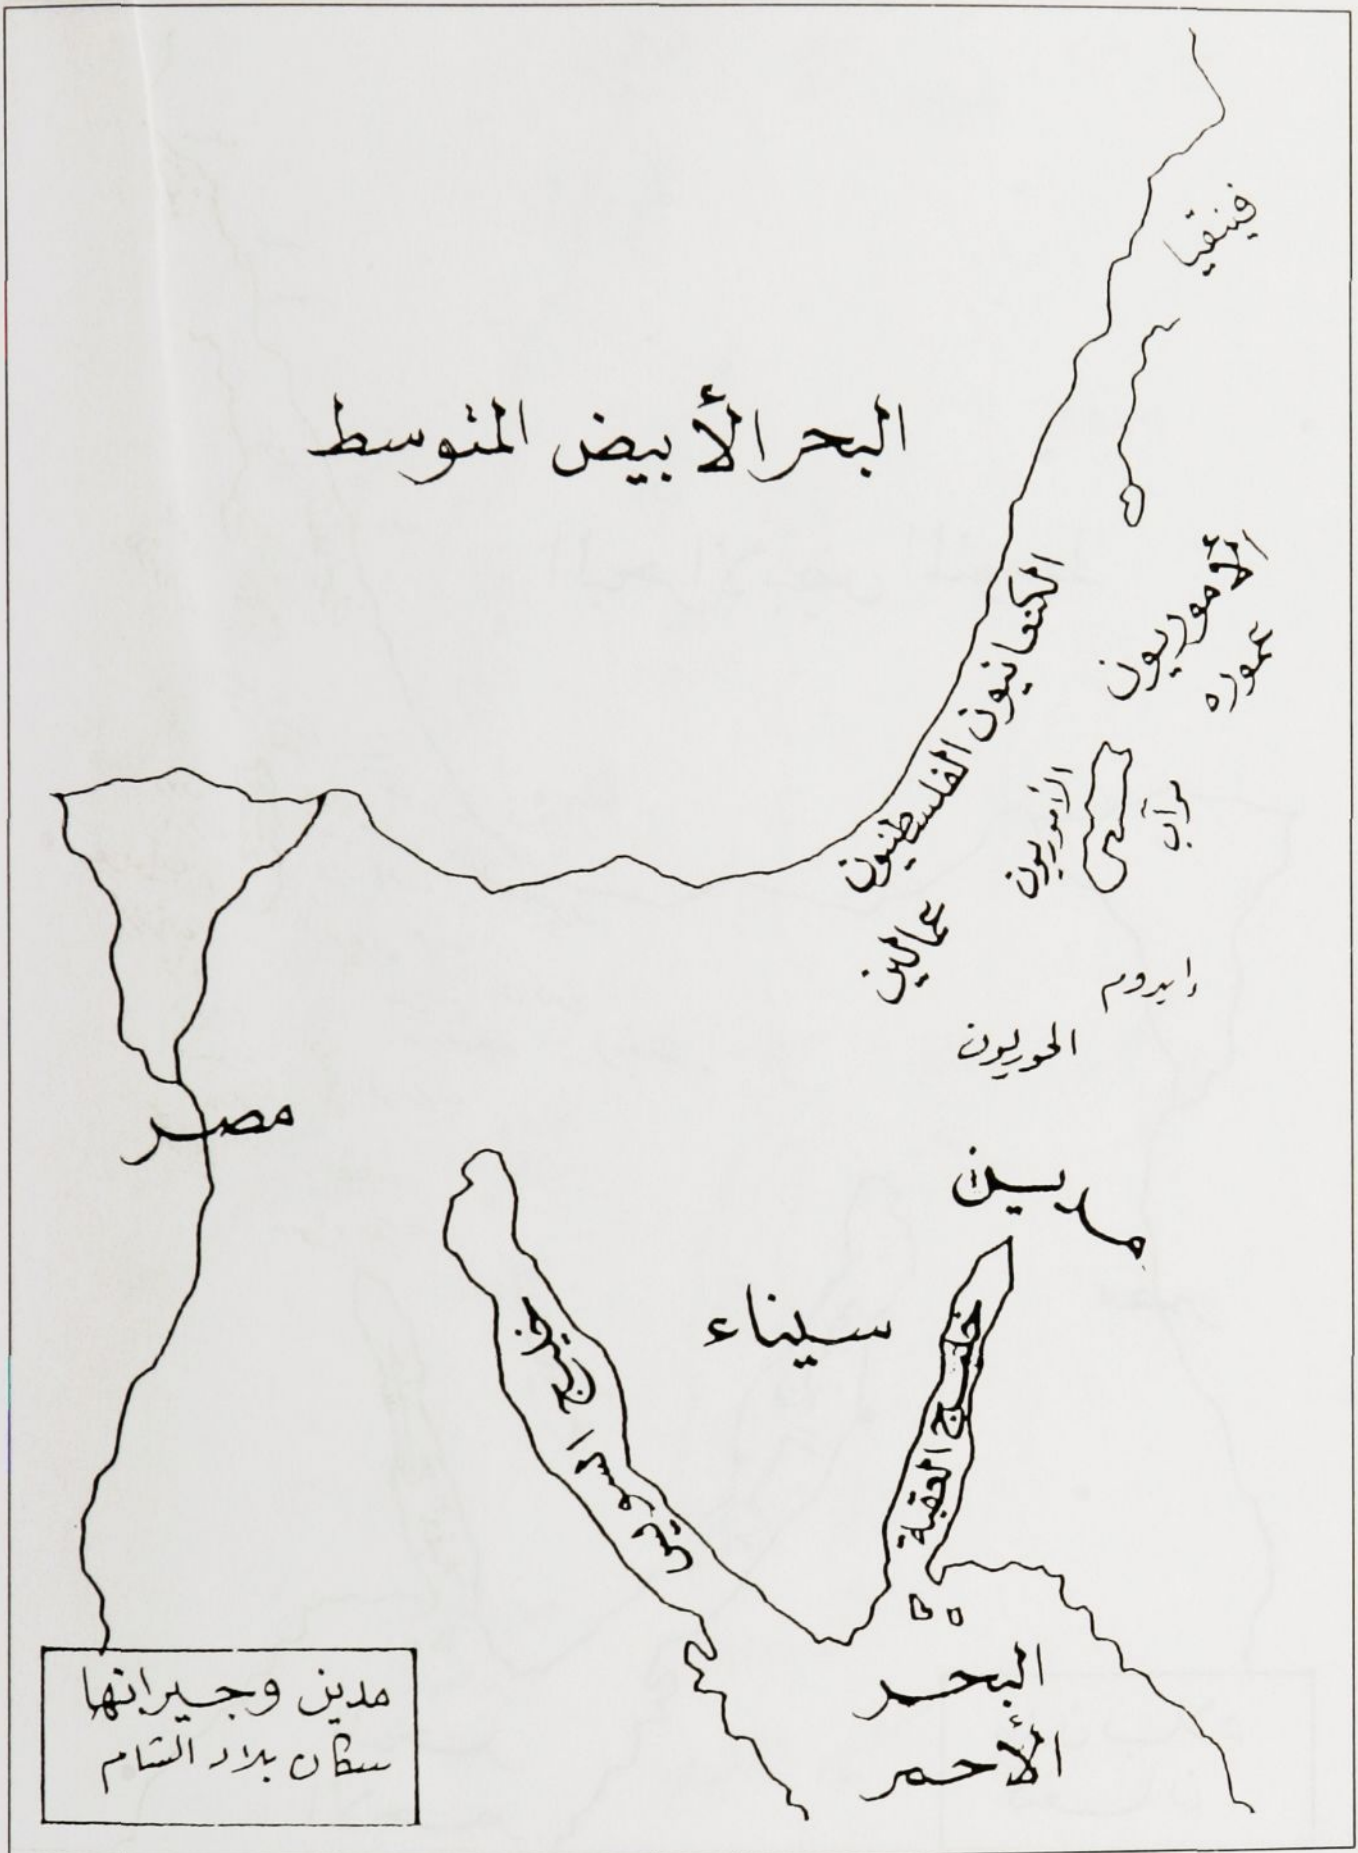 فينقيا
البحر الأبيض المتوسط
الأموريون
عموره
الكنعانيون الفلسطنيون
الأموريون
مرآب
عمالين
إيدوم
الحوريون
مصر
مدين
سيناء
خليج السويس
خليج العقبة
البحر
الأحمر
مدين وجيرانها
سكان بلاد الشام